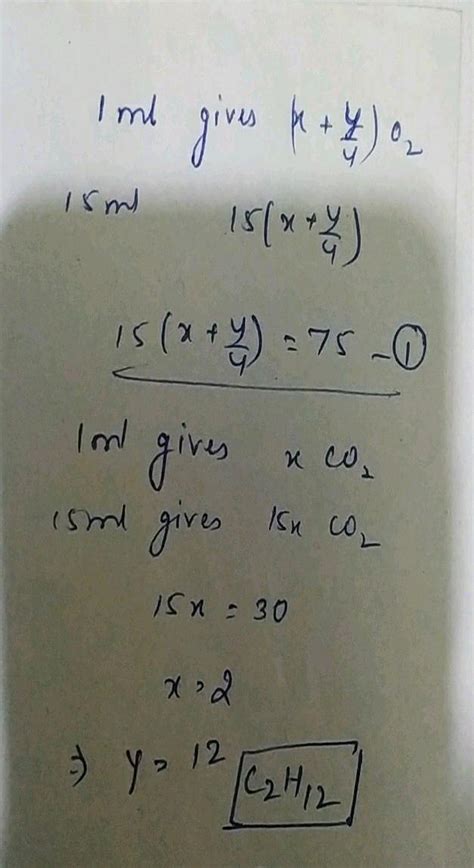 1 ml gives (x + y/4) O₂
15ml 15(x + y/4)
15(x + y/4) = 75 – ①
1ml gives x CO₂
15ml gives 15x CO₂
15x = 30
x = 2
⇒ y = 12 C₂H₁₂